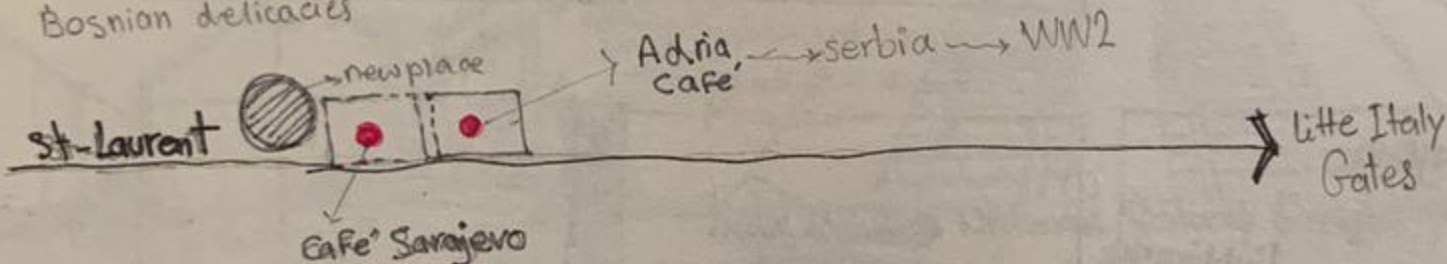 Bosnian delicacies
newplace
Adria, → serbia → WW2
Café
St-Laurent
Litte Italy
Gates
Café Sarajevo